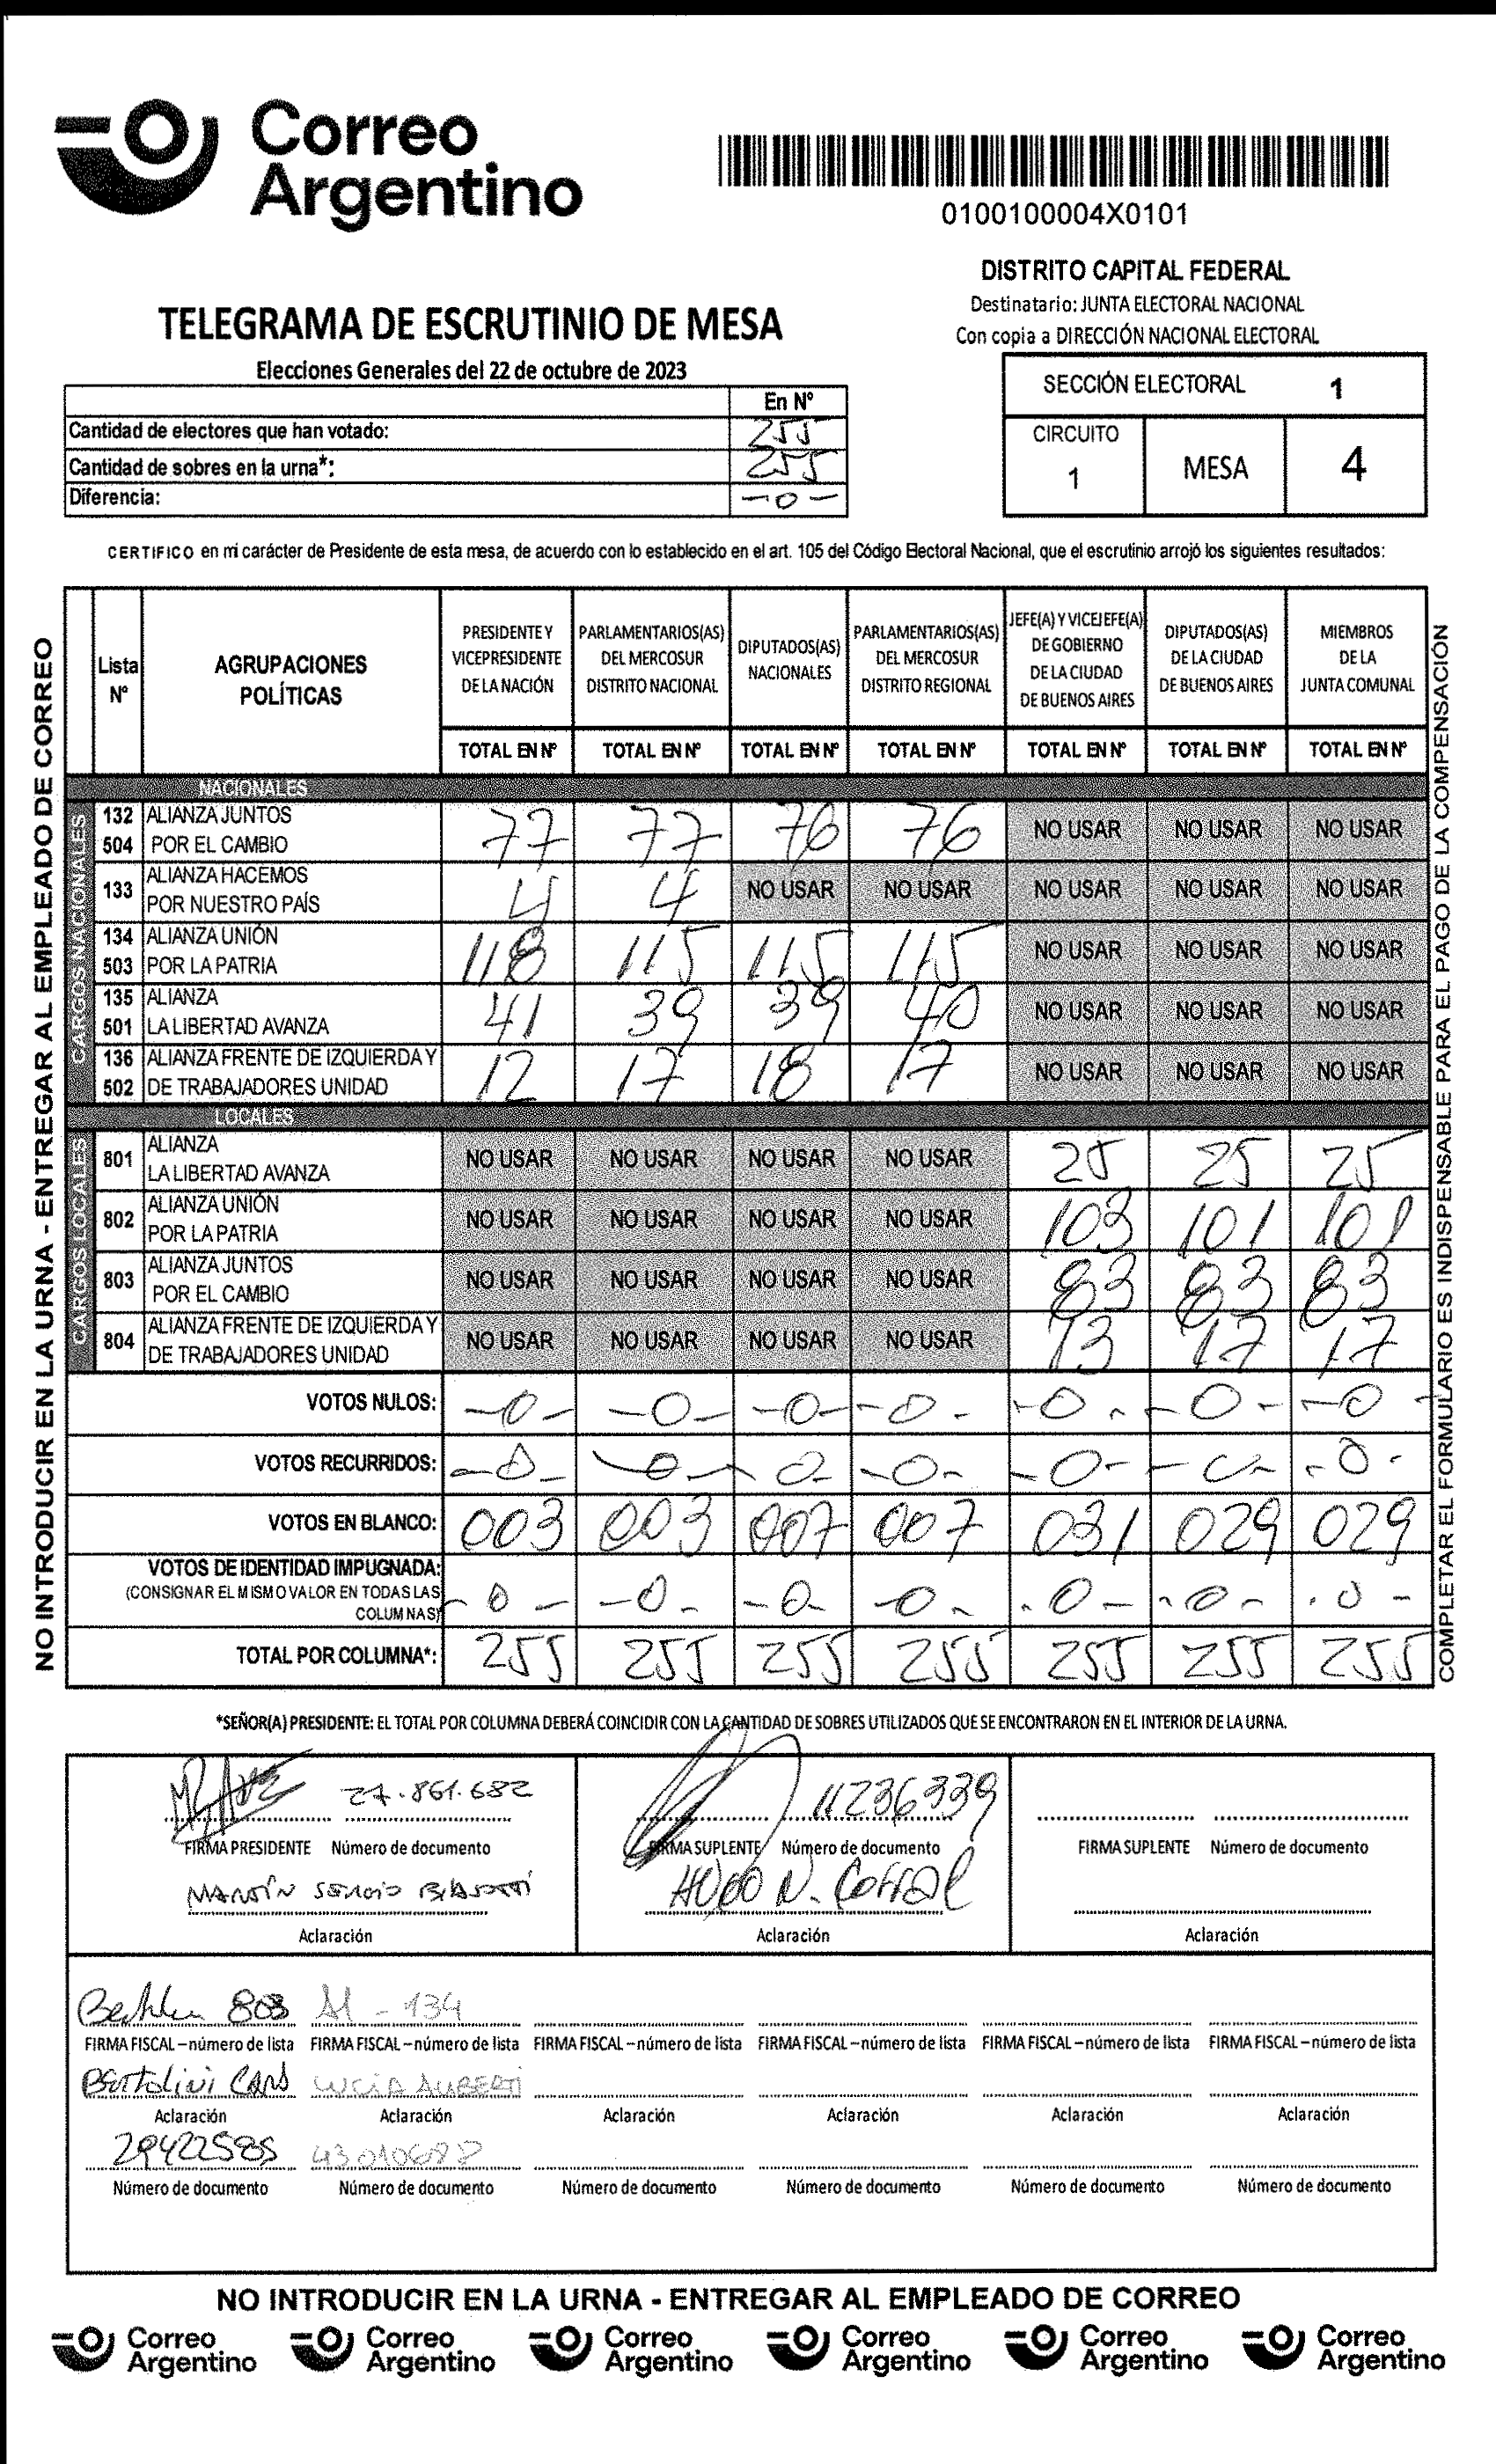 Correo
Argentino
0100100004X0101
DISTRITO CAPITAL FEDERAL
Destinatario: JUNTA ELECTORAL NACIONAL
Con copia a DIRECCIÓN NACIONAL ELECTORAL
TELEGRAMA DE ESCRUTINIO DE MESA
Elecciones Generales del 22 de octubre de 2023
En Nº
Cantidad de electores que han votado: 255
Cantidad de sobres en la urna*: 255
Diferencia: -0-
SECCIÓN ELECTORAL 1
CIRCUITO
1
MESA 4
CERTIFICO en mi carácter de Presidente de esta mesa, de acuerdo con lo establecido en el art. 105 del Código Electoral Nacional, que el escrutinio arrojó los siguientes resultados:
NO INTRODUCIR EN LA URNA - ENTREGAR AL EMPLEADO DE CORREO
Lista
Nº
AGRUPACIONES
POLÍTICAS
PRESIDENTE Y
VICEPRESIDENTE
DE LA NACIÓN
PARLAMENTARIOS(AS)
DEL MERCOSUR
DISTRITO NACIONAL
DIPUTADOS(AS)
NACIONALES
PARLAMENTARIOS(AS)
DEL MERCOSUR
DISTRITO REGIONAL
JEFE(A) Y VICEJEFE(A)
DE GOBIERNO
DE LA CIUDAD
DE BUENOS AIRES
DIPUTADOS(AS)
DE LA CIUDAD
DE BUENOS AIRES
MIEMBROS
DE LA
JUNTA COMUNAL
TOTAL EN Nº TOTAL EN Nº TOTAL EN Nº TOTAL EN Nº TOTAL EN Nº TOTAL EN Nº TOTAL EN Nº
NACIONALES
CARGOS NACIONALES
132 ALIANZA JUNTOS
504 POR EL CAMBIO
77 77 76 76 NO USAR NO USAR NO USAR
133
ALIANZA HACEMOS
POR NUESTRO PAÍS
4 4 NO USAR NO USAR NO USAR NO USAR NO USAR
134 ALIANZA UNIÓN
503 POR LA PATRIA
118 115 115 115 NO USAR NO USAR NO USAR
135 ALIANZA
501 LA LIBERTAD AVANZA
41 39 39 40 NO USAR NO USAR NO USAR
136 ALIANZA FRENTE DE IZQUIERDA Y
502 DE TRABAJADORES UNIDAD
12 17 18 17 NO USAR NO USAR NO USAR
LOCALES
CARGOS LOCALES
801
ALIANZA
LA LIBERTAD AVANZA
NO USAR NO USAR NO USAR NO USAR 25 25 25
802
ALIANZA UNIÓN
POR LA PATRIA
NO USAR NO USAR NO USAR NO USAR 103 101 101
803
ALIANZA JUNTOS
POR EL CAMBIO
NO USAR NO USAR NO USAR NO USAR 83 83 83
804
ALIANZA FRENTE DE IZQUIERDA Y
DE TRABAJADORES UNIDAD
NO USAR NO USAR NO USAR NO USAR 13 17 17
VOTOS NULOS: -0- -0- -0- -0- -0- -0- -0-
VOTOS RECURRIDOS: -0- -0- 0- -0- -0- -0- -0-
VOTOS EN BLANCO: 003 003 007 007 031 029 029
VOTOS DE IDENTIDAD IMPUGNADA:
(CONSIGNAR EL MISMO VALOR EN TODAS LAS
COLUMNAS)
-0- -0- -0- -0- -0- -0- -0-
TOTAL POR COLUMNA*: 255 255 255 255 255 255 255
COMPLETAR EL FORMULARIO ES INDISPENSABLE PARA EL PAGO DE LA COMPENSACIÓN
*SEÑOR(A) PRESIDENTE: EL TOTAL POR COLUMNA DEBERÁ COINCIDIR CON LA CANTIDAD DE SOBRES UTILIZADOS QUE SE ENCONTRARON EN EL INTERIOR DE LA URNA.
27.861.682 11236339
FIRMA PRESIDENTE Número de documento FIRMA SUPLENTE Número de documento FIRMA SUPLENTE Número de documento
MARTÍN SERGIO HUGO N. Corral
Aclaración Aclaración Aclaración
803 - 134
FIRMA FISCAL – número de lista FIRMA FISCAL – número de lista FIRMA FISCAL – número de lista FIRMA FISCAL – número de lista FIRMA FISCAL – número de lista FIRMA FISCAL – número de lista
Bertolini LUCÍA ALIBERTI
Aclaración Aclaración Aclaración Aclaración Aclaración Aclaración
29422585
Número de documento Número de documento Número de documento Número de documento Número de documento Número de documento
NO INTRODUCIR EN LA URNA - ENTREGAR AL EMPLEADO DE CORREO
Correo Correo Correo Correo Correo Correo
Argentino Argentino Argentino Argentino Argentino Argentino